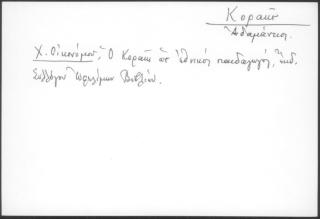 Κοραῆς
Ἀδαμάντιος.
Χ. Οἰκονόμου, Ὁ Κοραῆς ὡς ἐθνικὸς παιδαγωγός, ἔκδ.
Συλλόγου Ὠφελίμων Βιβλίων.